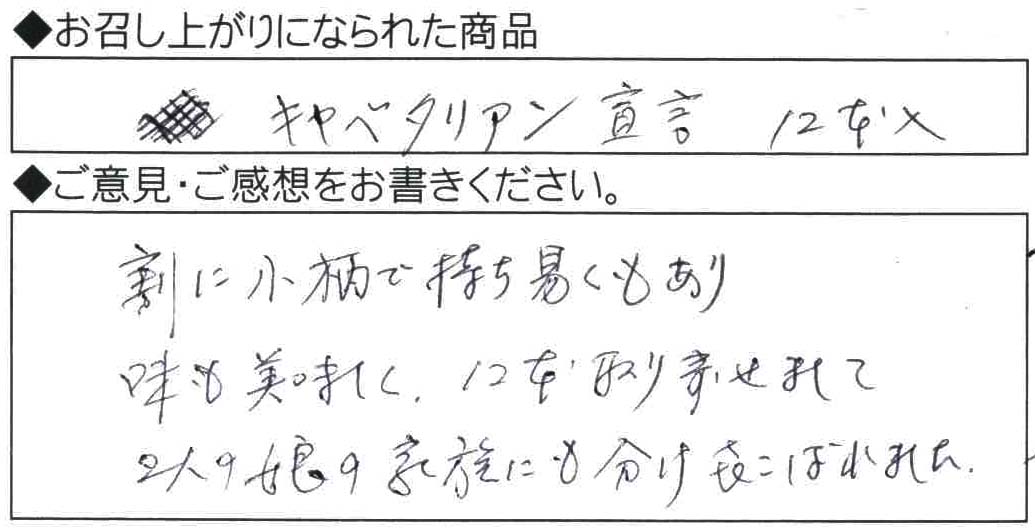 ◆お召し上がりになられた商品
キャベタリアン宣言 12本入
◆ご意見・ご感想をお書きください。
割に小柄で持ち易くもあり
味も美味しく、12本取り寄せまして
2人の娘の家族にも分け喜こばれました。